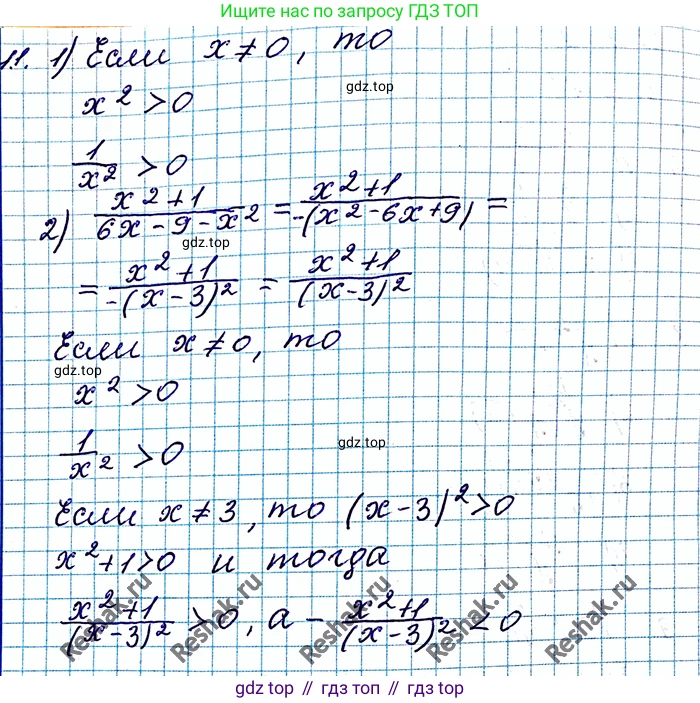 Ищите нас по запросу ГДЗ ТОП
11. 1) Если x ≠ 0, то
gdz.top
x² > 0
1/x² > 0
2) (x²+1)/(6x-9-x²) = (x²+1)/(-(x²-6x+9)) =
gdz.top
= (x²+1)/(-(x-3)²) = (x²+1)/((x-3)²)
Если x ≠ 0, то
gdz.top
x² > 0
1/x² > 0
gdz.top
Если x ≠ 3, то (x-3)² > 0
x²+1>0 и тогда
(x²+1)/((x-3)²) > 0, а - (x²+1)/((x-3)²) < 0
Reshak.ru Reshak.ru Reshak.ru Reshak.ru Reshak.ru
gdz top // гдз топ // gdz.top // гдз.топ